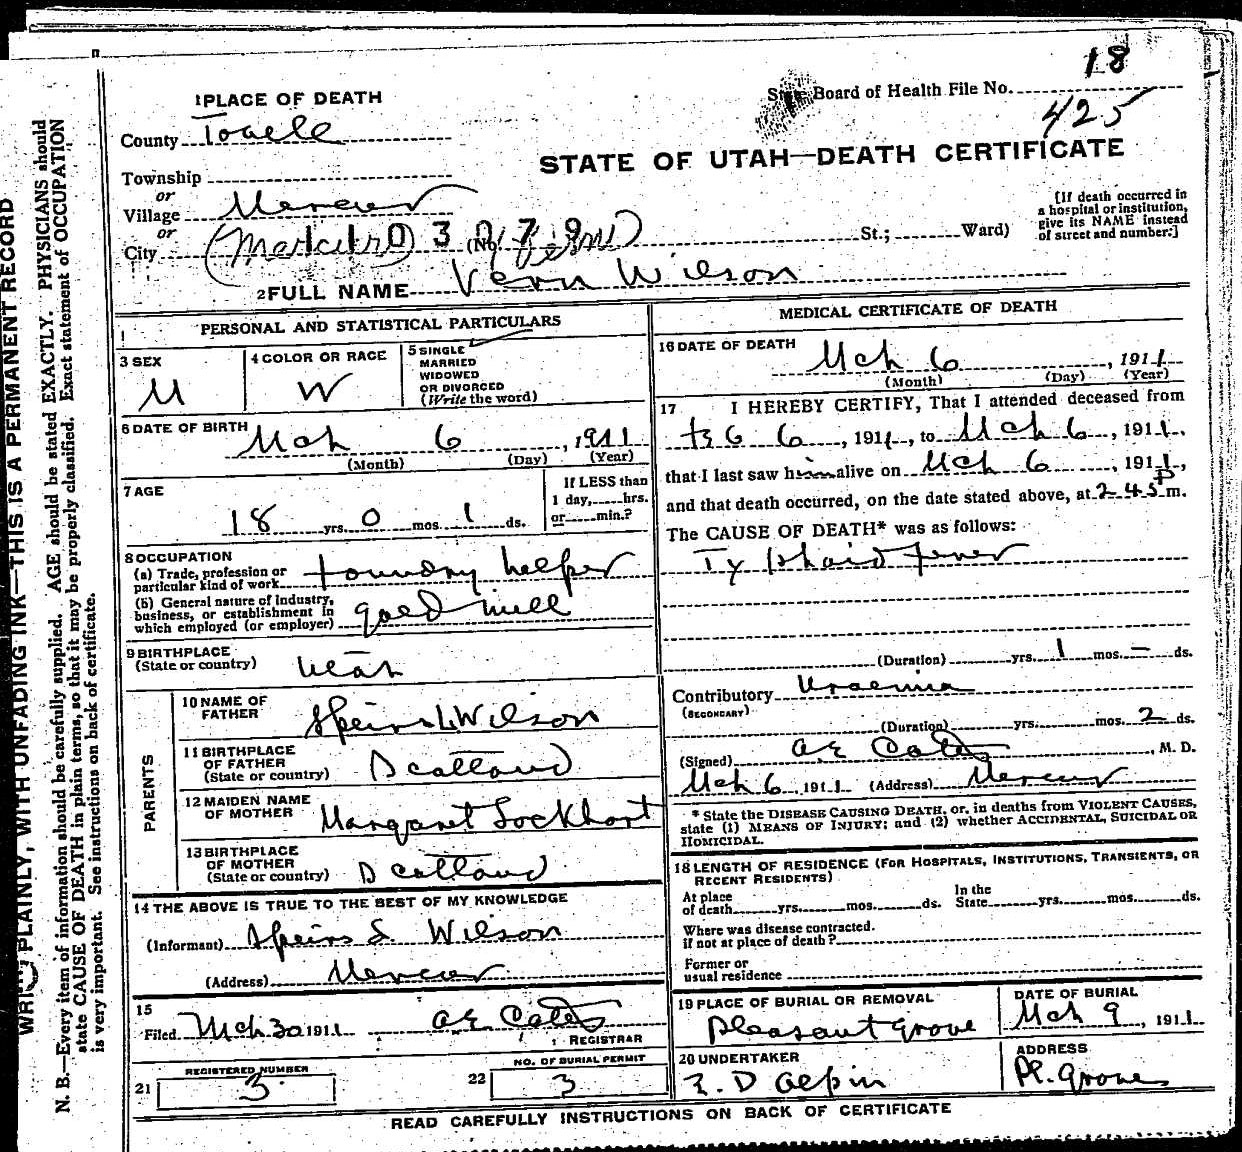 18
State Board of Health File No.
425
1 PLACE OF DEATH
County Tooele
STATE OF UTAH—DEATH CERTIFICATE
Township
or
Village Mercur
or
City (No. St.; Ward)
0 3 0 7 9
[If death occurred in a hospital or institution, give its NAME instead of street and number.]
2 FULL NAME Vern Wilson
PERSONAL AND STATISTICAL PARTICULARS
3 SEX
M
4 COLOR OR RACE
W
5 SINGLE
MARRIED
WIDOWED
OR DIVORCED
(Write the word)
6 DATE OF BIRTH Mch 6, 1911
(Month) (Day) (Year)
7 AGE
18 yrs. 0 mos. 1 ds.
If LESS than
1 day, hrs.
or min.?
8 OCCUPATION
(a) Trade, profession or
particular kind of work Foundry helper
(b) General nature of industry,
business, or establishment in
which employed (or employer) gold mill
9 BIRTHPLACE
(State or country) Utah
PARENTS
10 NAME OF
FATHER Speirs L Wilson
11 BIRTHPLACE
OF FATHER
(State or country) Scotland
12 MAIDEN NAME
OF MOTHER Margaret Lockhart
13 BIRTHPLACE
OF MOTHER
(State or country) Scotland
14 THE ABOVE IS TRUE TO THE BEST OF MY KNOWLEDGE
(Informant) Speirs L Wilson
(Address) Mercur
15
Filed Mch 30 1911 A E Cates
REGISTRAR
21 REGISTERED NUMBER
3
22 NO. OF BURIAL PERMIT
3
MEDICAL CERTIFICATE OF DEATH
16 DATE OF DEATH
Mch 6, 1911
(Month) (Day) (Year)
17 I HEREBY CERTIFY, That I attended deceased from
Feb 6, 1911, to Mch 6, 1911,
that I last saw him alive on Mch 6, 1911,
and that death occurred, on the date stated above, at 2 45 P m.
The CAUSE OF DEATH* was as follows:
Typhoid fever
(Duration) yrs. 1 mos. – ds.
Contributory Uraemia
(SECONDARY)
(Duration) yrs. mos. 2 ds.
(Signed) A E Cates, M. D.
Mch 6, 1911 (Address) Mercur
* State the DISEASE CAUSING DEATH, or, in deaths from VIOLENT CAUSES,
state (1) MEANS OF INJURY; and (2) whether ACCIDENTAL, SUICIDAL OR
HOMICIDAL.
18 LENGTH OF RESIDENCE (FOR HOSPITALS, INSTITUTIONS, TRANSIENTS, OR
RECENT RESIDENTS)
At place
of death yrs. mos. ds.
In the
State yrs. mos. ds.
Where was disease contracted.
if not at place of death?
Former or
usual residence
19 PLACE OF BURIAL OR REMOVAL
Pleasant Grove
DATE OF BURIAL
Mch 9, 1911
20 UNDERTAKER
ADDRESS
Pl. Grove
READ CAREFULLY INSTRUCTIONS ON BACK OF CERTIFICATE
WRITE PLAINLY, WITH UNFADING INK—THIS IS A PERMANENT RECORD
N. B.—Every item of information should be carefully supplied. AGE should be stated EXACTLY. PHYSICIANS should
state CAUSE OF DEATH in plain terms, so that it may be properly classified. Exact statement of OCCUPATION
is very important. See instructions on back of certificate.